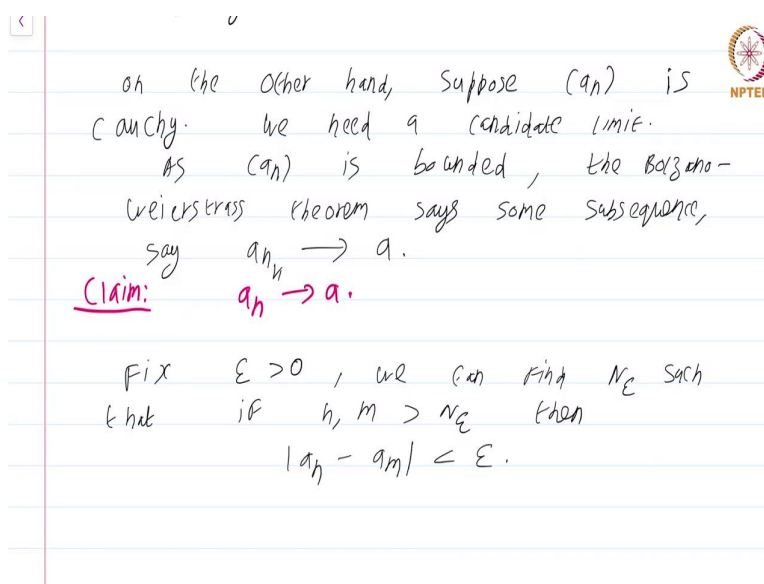 on the other hand, suppose (an) is
Cauchy. We need a candidate limit.
As (an) is bounded, the Bolzano-
Weierstrass theorem says some subsequence,
say ank → a.
Claim: an → a.
Fix ε > 0, we can find Nε such
that if n, m > Nε then
|an - am| < ε.
NPTEL